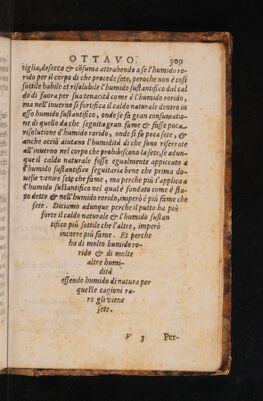 OTTAVO. 309
viglia, desecca & cõsuma attrahendo a se l'humido ro-
rido per il corpo di che procede sete, peroche non è cosi
sottile habile et risolubile l'humido sustantifico dal cal
do di fuora per sua tenacità come è l'humido rorido,
ma nell'inuerno si fortifica il caldo naturale dentro in
esso humido sustantifico, onde se fa gran consumatio-
ne di quello da che seguita gran fame & fasse poca
risolutione d'humido rorido, onde si fa poca sete, &
anche acciò aiutano l'humidità di che sono riserrate
all'inuerno nel corpo che prohibiscono la sete, se adun-
que il caldo naturale fosse egualmente appiccato a
l'humido sustantifico seguitaria bene che prima do-
uesse venire sete che fame, ma perche più s'applica a
l'humido sustantifico nel qual è fondato come è sta-
to detto & nell'humido rorido, imperò è più fame che
sete. Diciamo adunque perche il putto ha più
forte il caldo naturale & l'humido sustan
tifico più sottile che l'altre, imperò
incorre più fame. Et perche
ha di molto humido ro-
rido & di molte
altre humi-
dità
essendo humido di natura per
queste cagioni ra-
ro gli viene
sete.
V 3 Per-